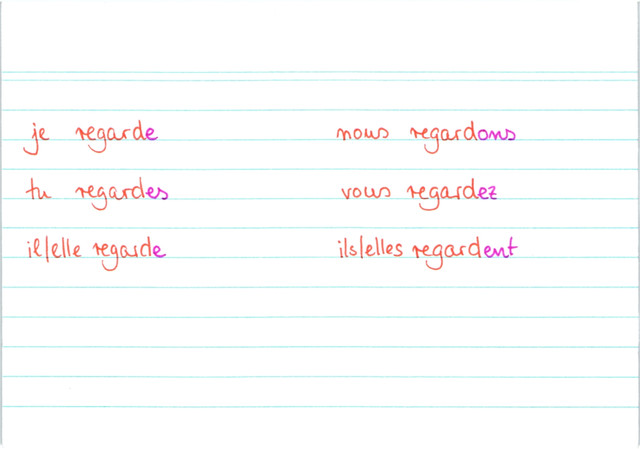 je regarde nous regardons
tu regardes vous regardez
il/elle regarde ils/elles regardent